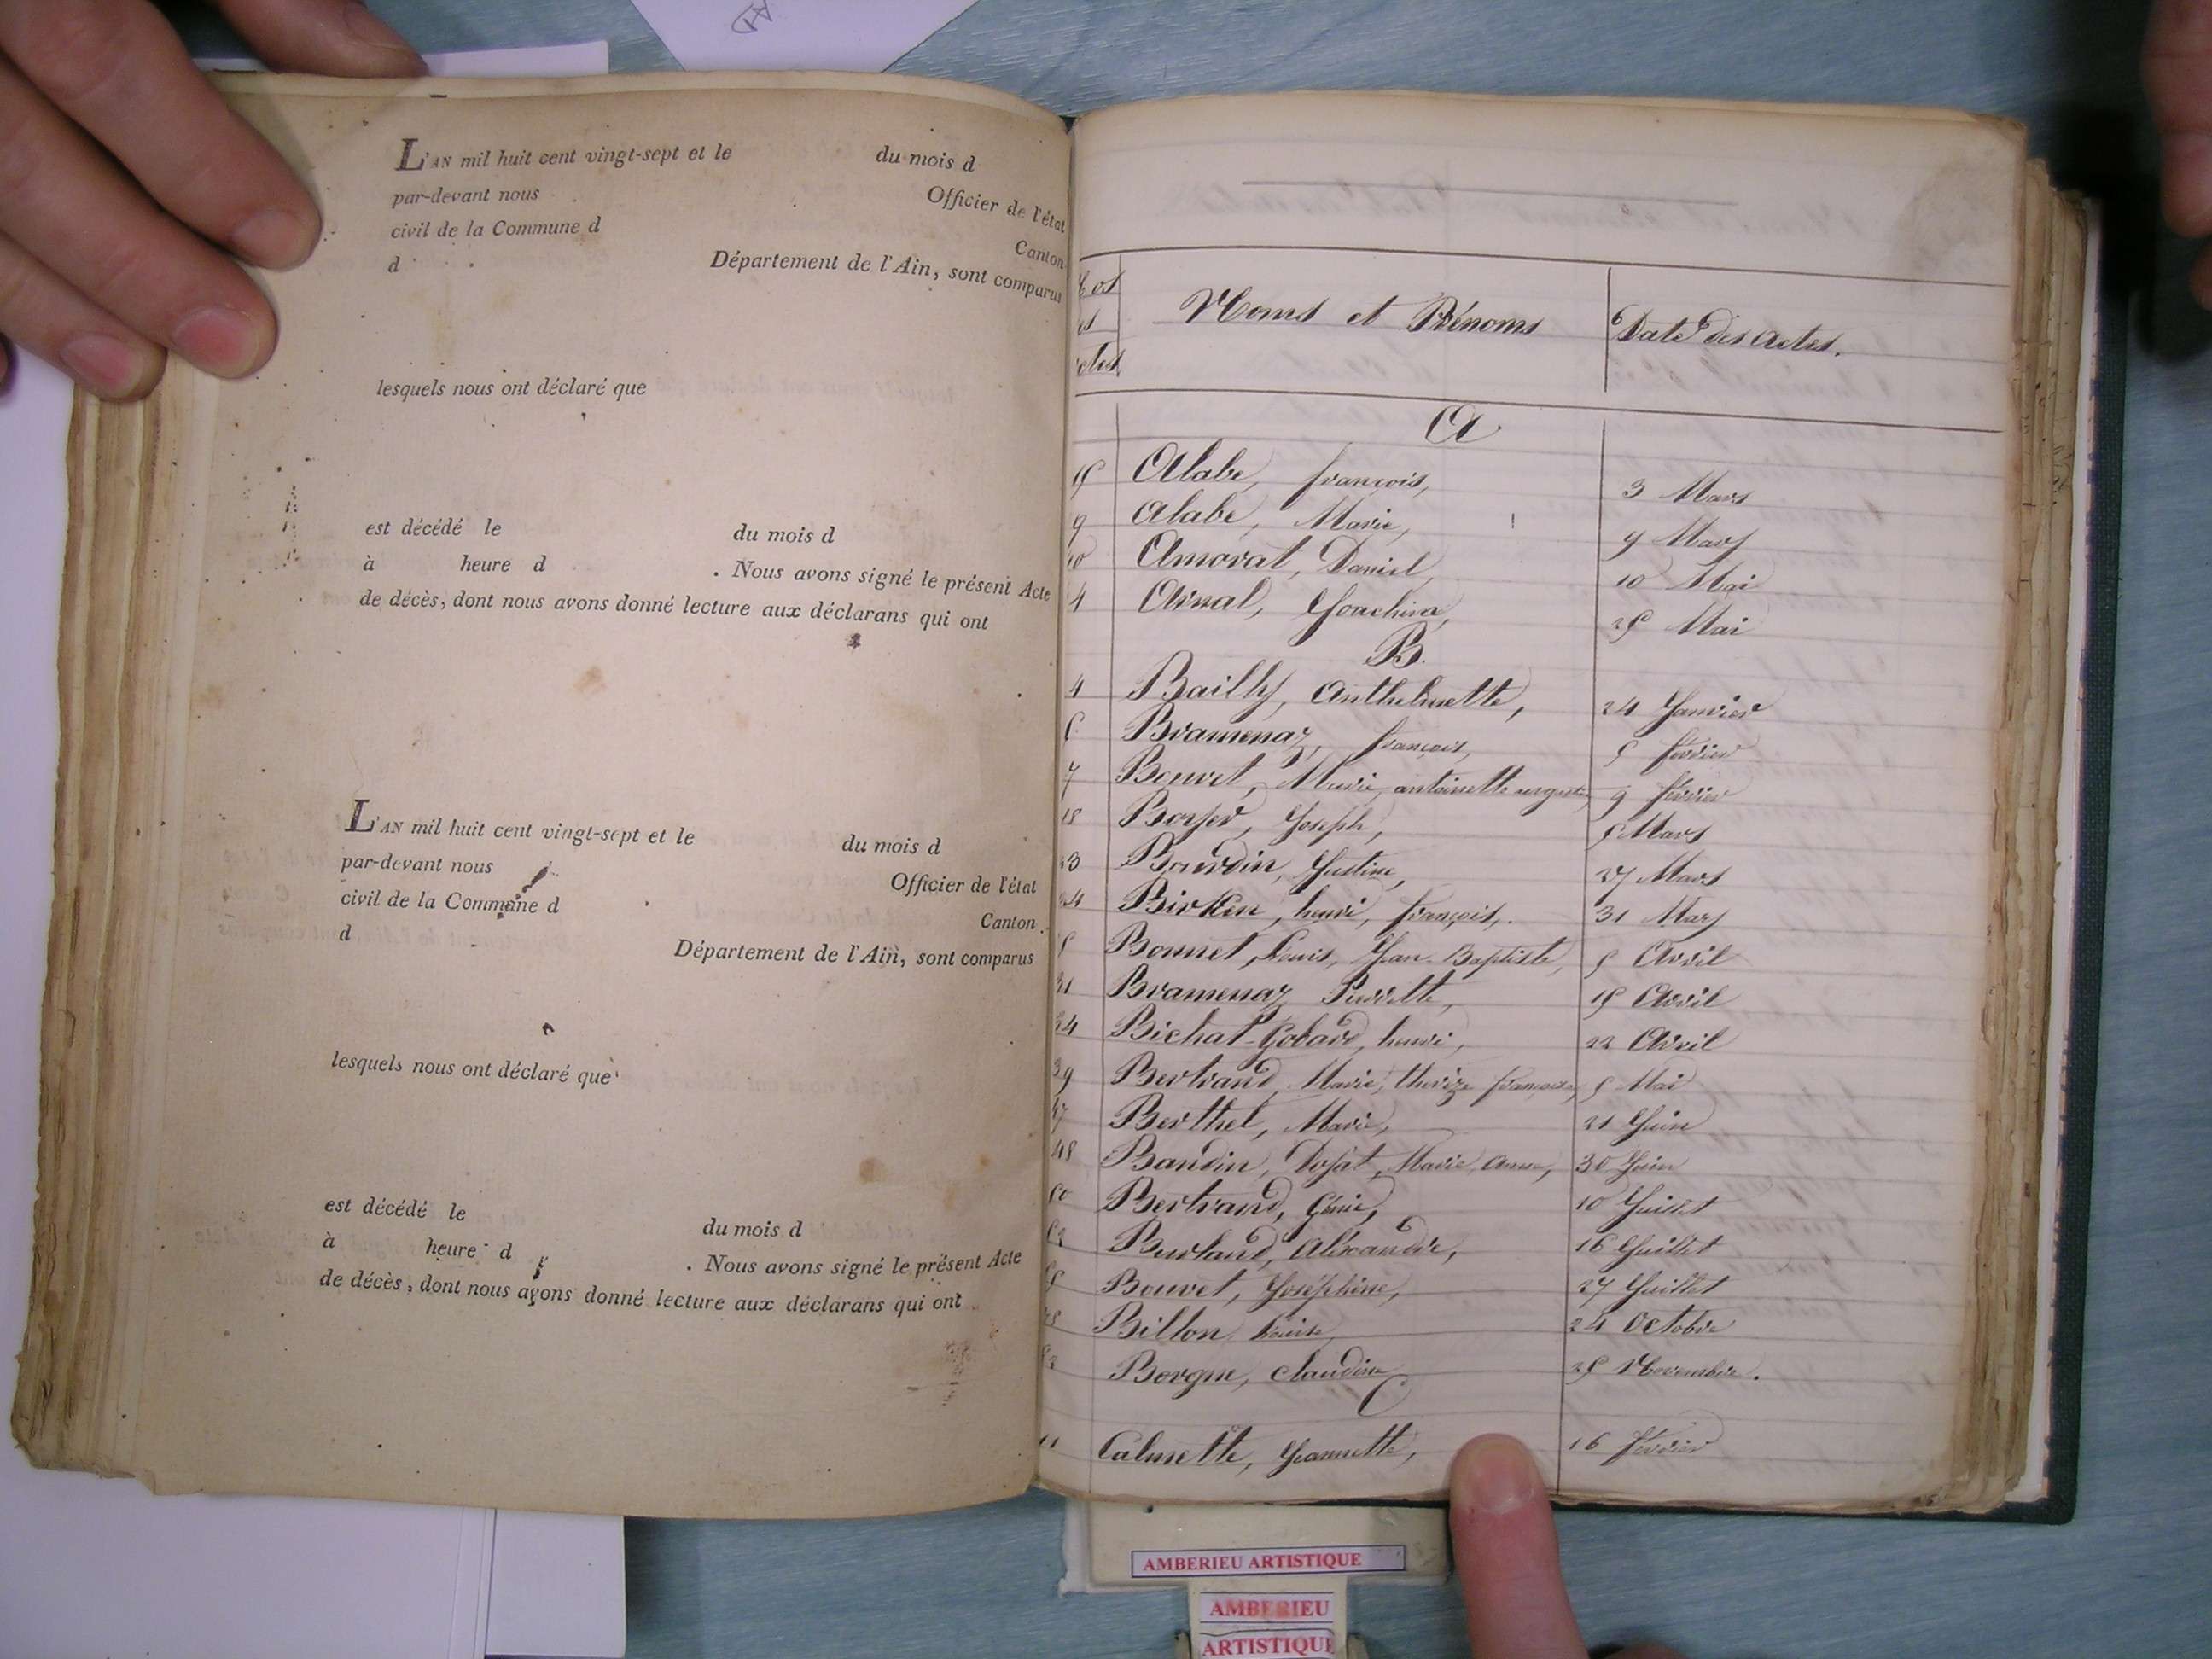 L'AN mil huit cent vingt-sept et le du mois d
par-devant nous Officier de l'état
civil de la Commune d Canton
d Département de l'Ain, sont comparus
lesquels nous ont déclaré que
est décédé le du mois d
à heure d . Nous avons signé le présent Acte
de décès, dont nous avons donné lecture aux déclarans qui ont
L'AN mil huit cent vingt-sept et le du mois d
par-devant nous Officier de l'état
civil de la Commune d Canton
d Département de l'Ain, sont comparus
lesquels nous ont déclaré que
est décédé le du mois d
à heure d . Nous avons signé le présent Acte
de décès, dont nous avons donné lecture aux déclarans qui ont
Noms et Prénoms Date des Actes.
A
Alabe, françois, 3 Mars
9 Alabe, Marie, 9 Mars
Amorat, Daniel, 10 Mai
Joachim, 25 Mai
B
4 Bailly, Anthelmette, 24 Janvier
5 Bramenaz, françois, 5 février
7 Bouvet, Marie, antoinette 9 février
18 Boyer, Joseph, 5 Mars
23 Bourdin, Justine, 27 Mars
24 Birken, henri, françois, 31 Mars
Bonnet, Louis, Jean-Baptiste, 5 Avril
31 Bramenaz Pierrette, 15 Avril
34 Bichat-Gobard, henri, 22 Avril
39 Bertrand, Marie, thérèze françoise, 5 Mai
47 Berthet, Marie, 21 Juin
48 Baudin, Marie Anne, 30 Juin
50 Bertrand, Génie, 10 Juillet
52 Burland, Aléxandre, 16 Juillet
Bouvet, Joséphine, 27 Juillet
Billon Louise, 24 Octobre
Borgne, Claudine 25 Novembre.
C
11 Calmette, Jeannette, 16 février
AMBERIEU ARTISTIQUE
AMBERIEU
ARTISTIQUE